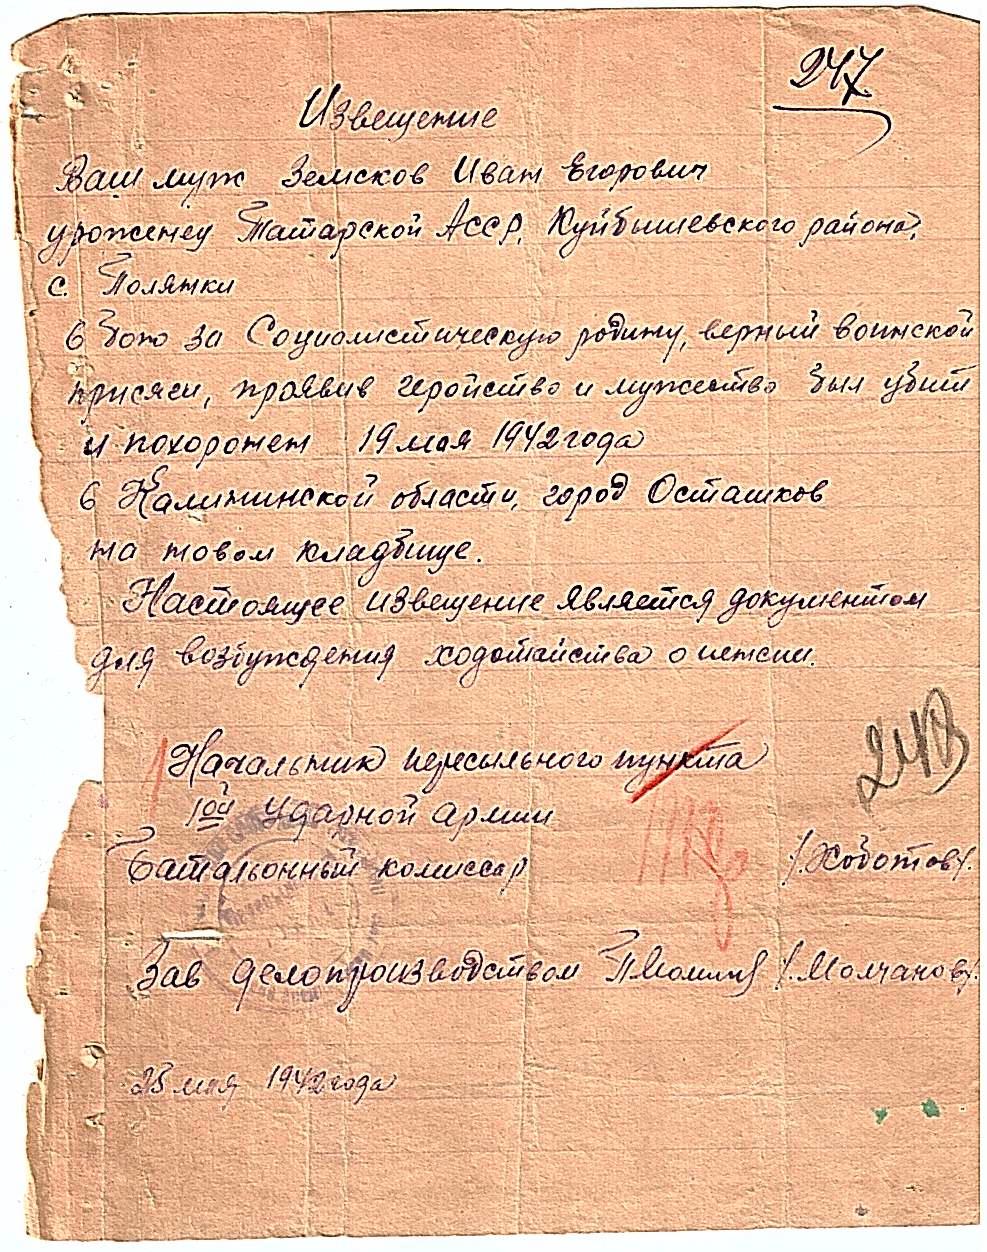 247
Извещение
Ваш муж Земсков Иван Егорович
уроженец Татарской АССР, Куйбышевского района,
с. Полянки
в бою за Социалистическую родину, верный воинской
присяги, проявив геройство и мужество был убит
и похоронен 19 мая 1942 года
в Калининской области, город Осташков
на новом кладбище.
Настоящее извещение является документом
для возбуждения ходотайства о пенсии.
Начальник пересыльного пункта
1ой Ударной армии
Батальонный комиссар /.Хоботов/.
Зав делопроизводством /.Молчанов/.
25 мая 1942 года